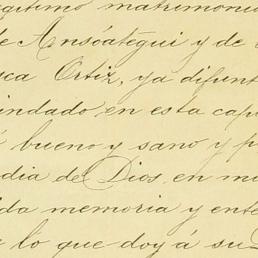 legítimo matrimonio
de Ansóategui y de
sca Ortiz, ya difunt
indado en esta cap
bueno y sano y p
dia de Dios, en m
da memoria y ente
lo que doy á su D